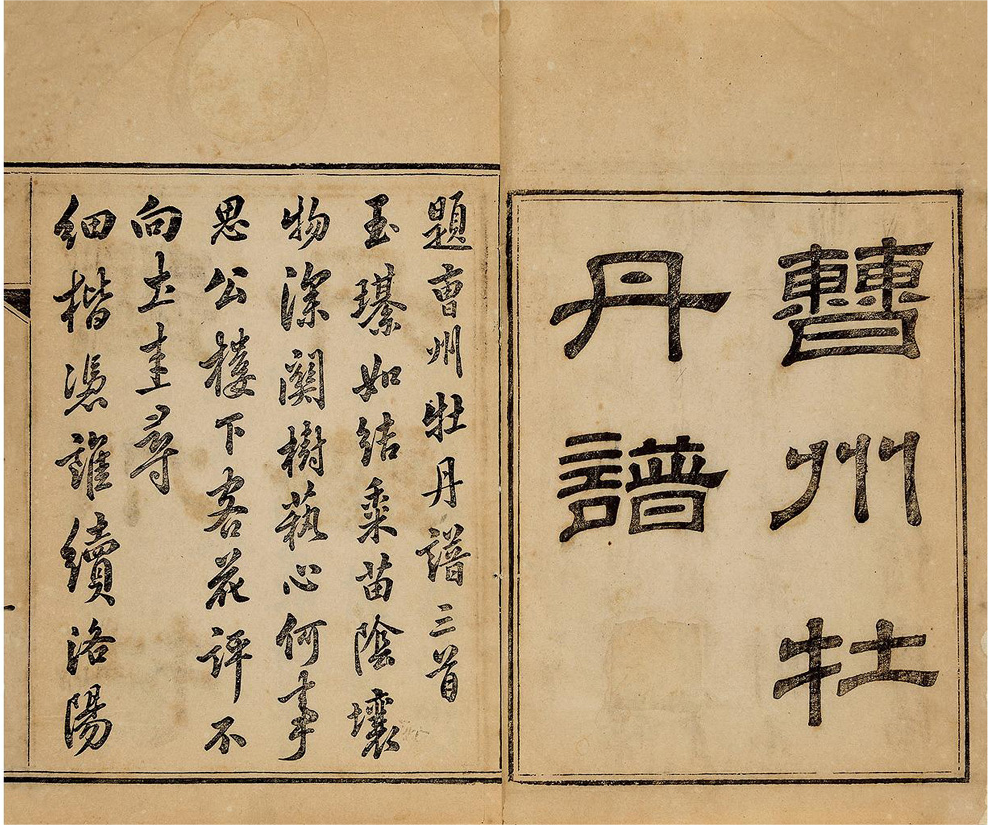 曹州牡
丹譜
題曹州牡丹譜三首
玉如結苗陰壤
物深關樹藝心何事
思公樓下客花評不
向土圭尋
細楷憑誰續洛陽